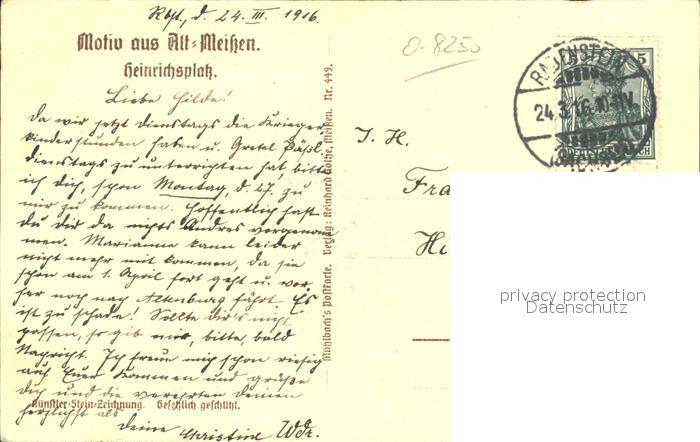 Rbst., d. 24. III. 1916.
Motiv aus Alt-Meißen.
Heinrichsplatz.
Liebe Hilde!
Da wir jetzt Dienstags die Krieger
kinderstunden haben u. Gretel
Dienstags zu unterrichten hat, bitte
ich Dich, schon Montag, d. 27. zu
mir zu kommen. Hoffentlich hast
du dir da nichts Andres vorgenom
men. Marianne kann leider
nicht mehr mit kommen, da sie
schon am 1. April fort geht u. vor
her noch nach Altenburg fährt. Es
ist zu schade! Sollte dir's nicht
passen, so gib mir, bitte, bald
Nachricht. Ich freue mich schon riesig
auf Euer Kommen und grüße
Dich und die verehrten Deinen
herzlichst als
Deine Christine
Künstler-Stein-Zeichnung. Gesetzlich geschützt.
Mühlbach's Postkarte. Verlag: Reinhard Rothe, Meißen. Nr. 449.
0-8250
I. H.
Fra
Hi
RABENSTEIN
24.3.16. 10-11V.
5
privacy protection
Datenschutz